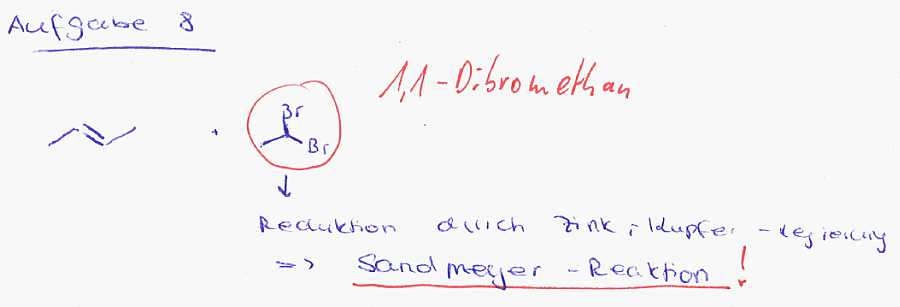 Aufgabe 8
1,1-Dibromethan
+
Br
Br
Reduktion durch Zink, Kupfer-Legierung
=> Sandmeyer-Reaktion !